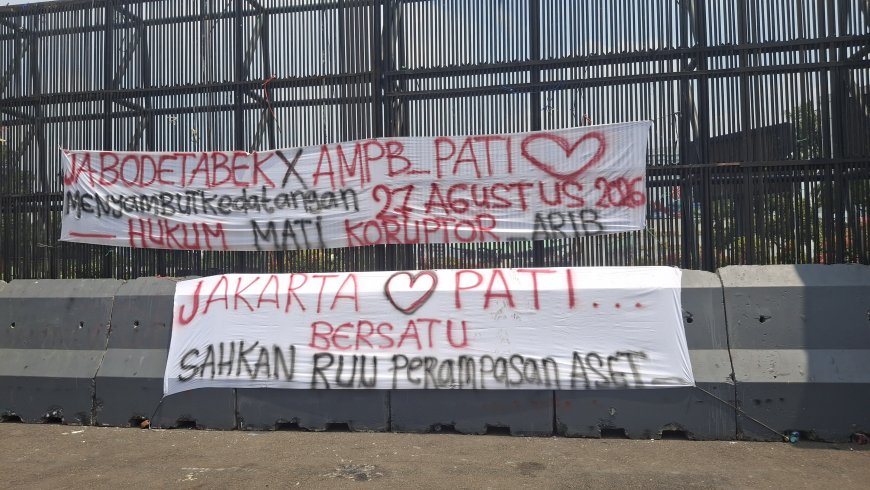 JABODETABEK X AMPB_PATI
MENYAMBUT KEDATANGAN 27 AGUSTUS 2026
— HUKUM MATI KORUPTOR _ ARIB
JAKARTA PATI...
BERSATU
SAHKAN RUU PERAMPASAN ASET_